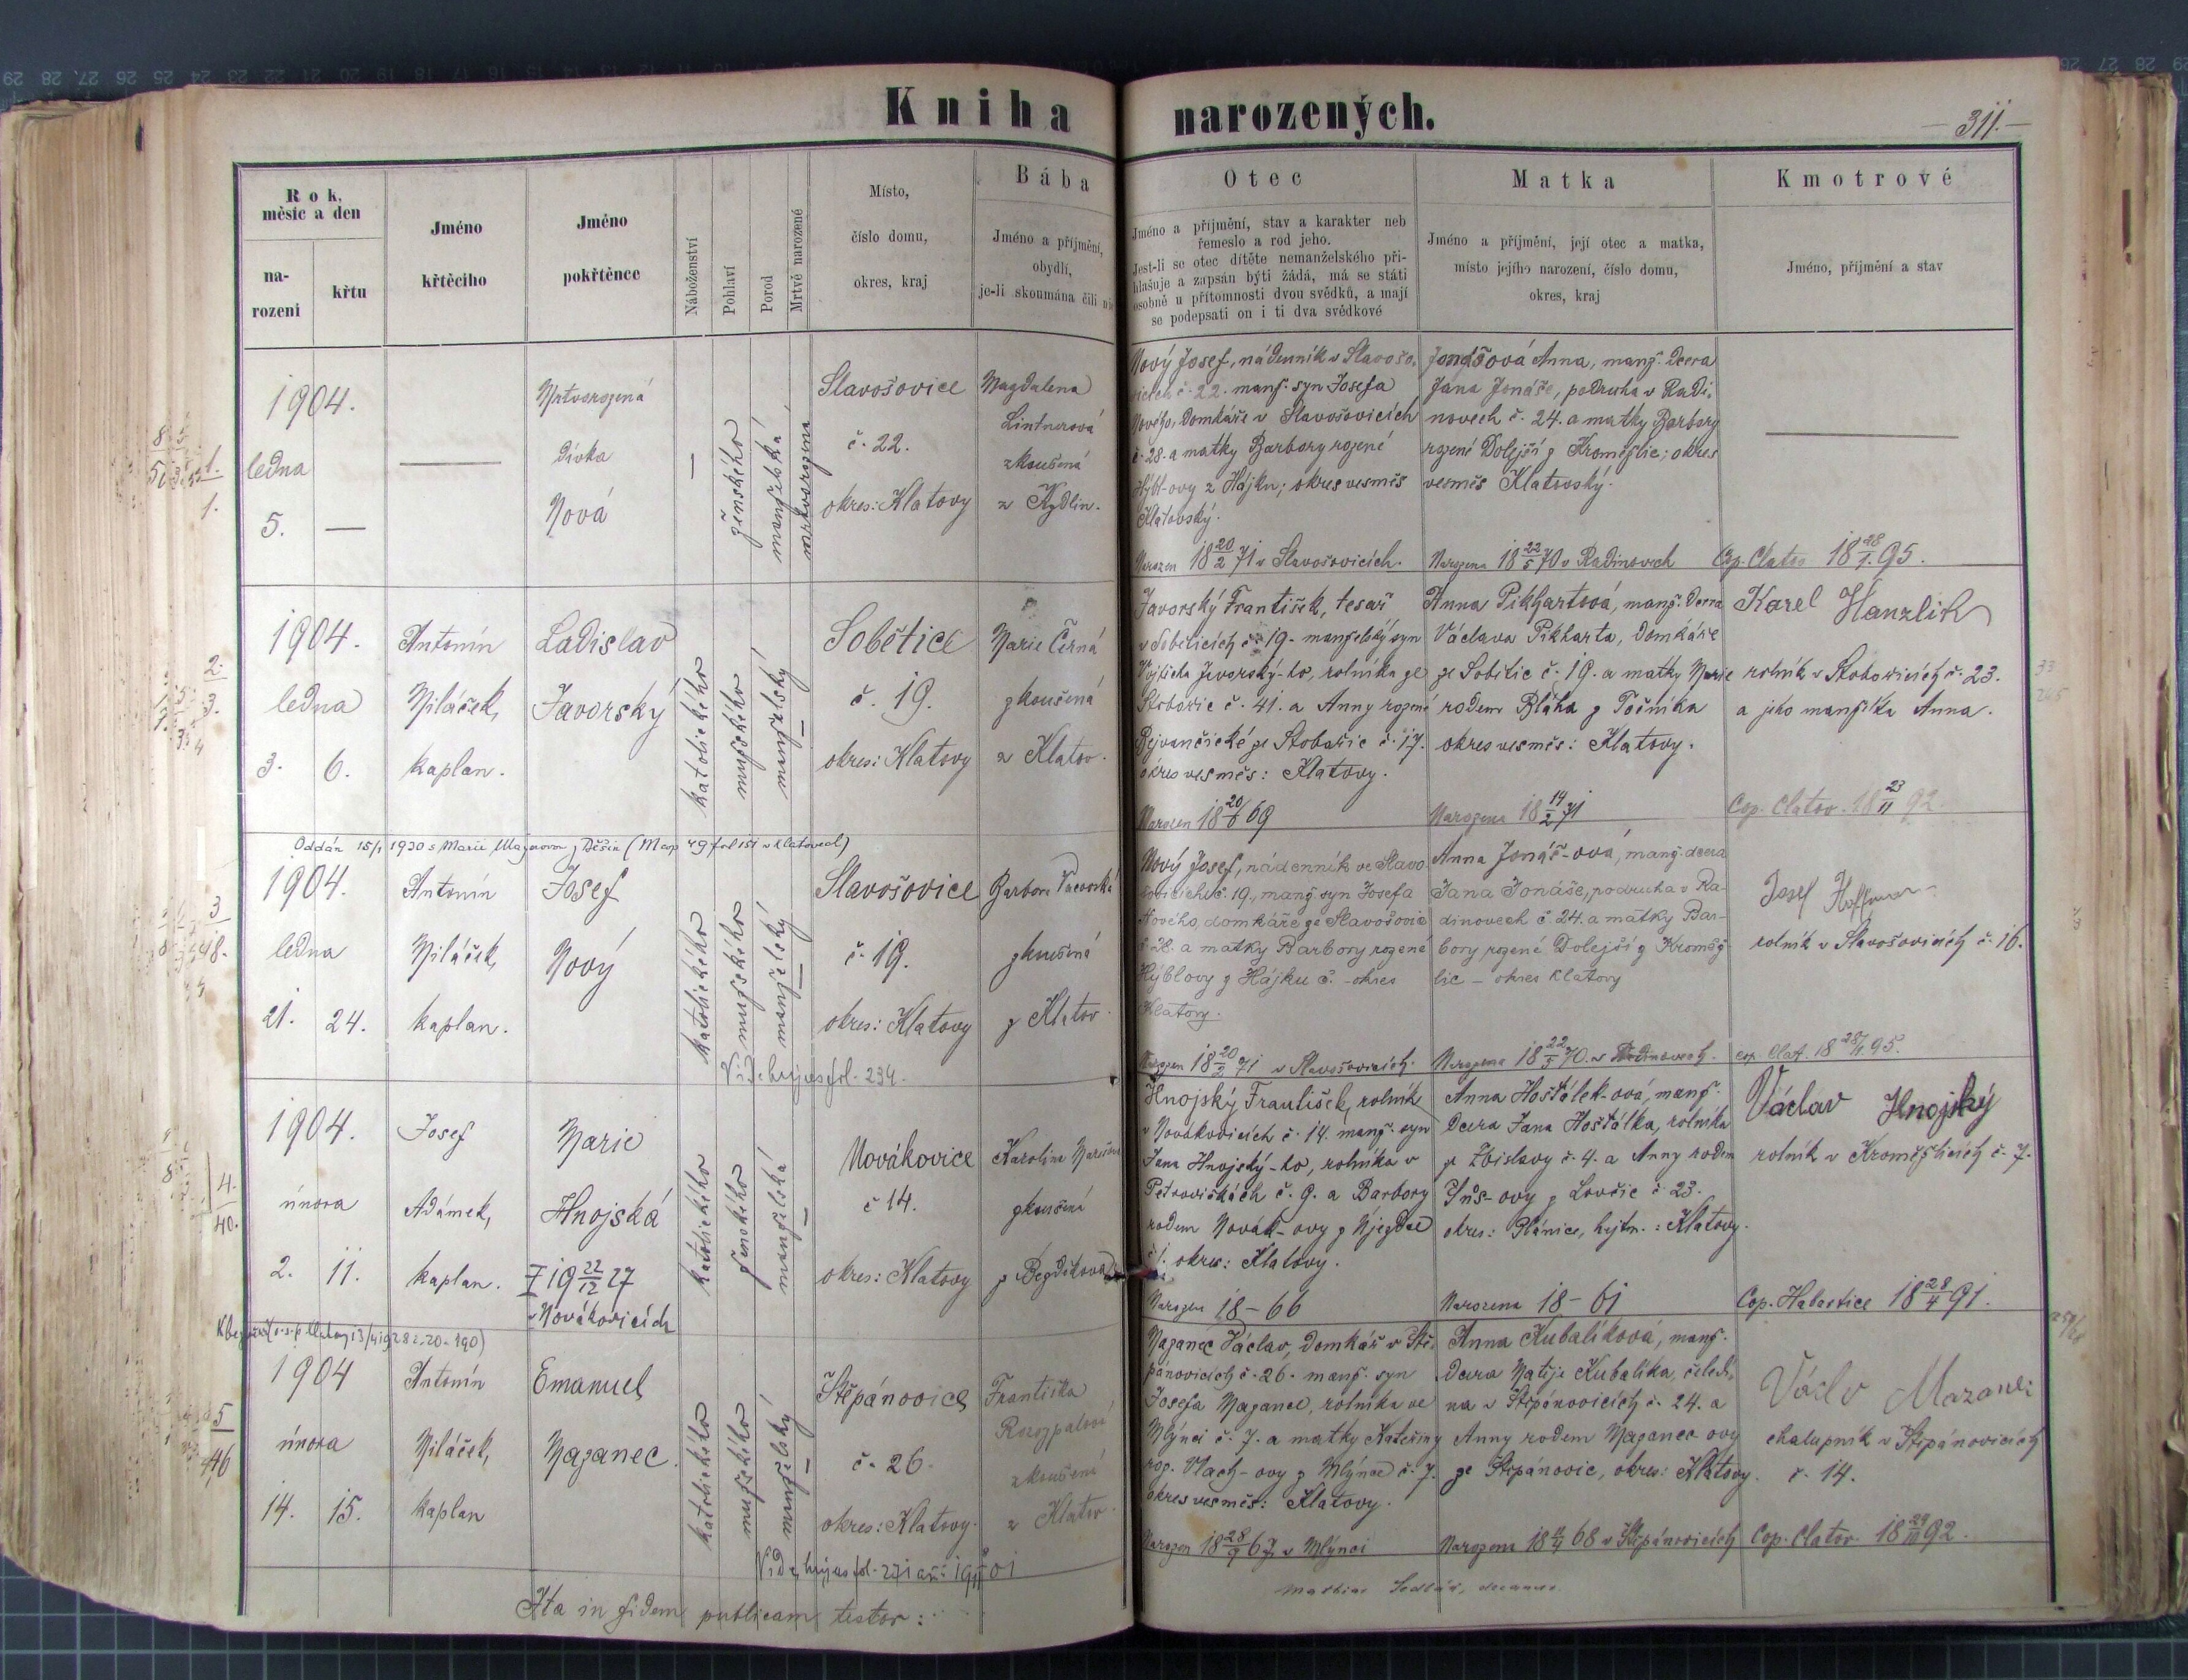 Kniha narozených.
— 311. —
Rok, měsíc a den
narození
křtu
Jméno křtěcího
Jméno pokřtěnce
Náboženství
Pohlaví
Porod
Mrtvě narozené
Místo,
číslo domu,
okres, kraj
Bába
Jméno a příjmění,
obydlí,
je-li skoumána čili
Otec
Jméno a příjmění, stav a karakter neb
řemeslo a rod jeho.
Jest-li se otec dítěte nemanželského při-
hlašuje a zapsán býti žádá, má se státi
osobně u přítomnosti dvou svědků, a mají
se podepsati on i ti dva svědkové
Matka
Jméno a příjmění, její otec a matka,
místo jejího narození, číslo domu,
okres, kraj
Kmotrové
Jméno, příjmění a stav
1.
1.
1904.
ledna
5. —
Mrtvorozená
dívka
Nová
ženského
manželská
mrtvorozená
Slavošovice
č. 22.
okres: Klatovy
Magdalena
Lintnerová
zkoušená
z Kydlin.
Nový Josef, nádenník v Slavošo-
vicích č. 22. manž. syn Josefa
Nového, domkáře v Slavošovicích
č. 28. a matky Barbory rozené
Hýbl-ovy z Hájku; okres vesměs
Klatovský.
Narozen 18 20/2 71 v Slavošovicích.
Jonášová Anna, manž. dcera
Jana Jonáše, podruha v Radi-
novech č. 24. a matky Barbory
rozené Dolejší z Kroměžlic; okres
vesměs Klatovský.
Narozena 18 22/5 70 v Radinovech
Cop. Clatov 18 28/1 95.
2.
3.
1904.
ledna
3. 6.
Antonín
Miláček,
kaplan.
Ladislav
Javorský
katolického
mužského
manželský
Sobětice
č. 19.
okres: Klatovy
Marie Černá
zkoušená
z Klatov.
Javorský František, tesař
v Soběticích č. 19. manželský syn
Vojtěcha Javorský-ho, rolníka ze
č. 41. a Anny rozené
č. 17.
okres vesměs: Klatovy.
Narozen 18 69
Anna Pikhartová, manž. dcera
Václava Pikharta, domkáře
ze Sobětic č. 19. a matky Marie
rodem Bláha z Točníka
okres vesměs: Klatovy.
Narozena 18 14/2 71
Karel Hanzlík
rolník v č. 23.
a jeho manželka Anna.
Cop. Clatov. 18 23/11 92
Oddán 15/1 1930 s Marií
3
18.
1904.
ledna
21. 24.
Antonín
Miláček,
kaplan.
Josef
Nový
katolického
mužského
manželský
Slavošovice
č. 19.
okres: Klatovy
Barbora
zkoušená
z Klatov.
Vide hujus fol. 234.
Nový Josef, nádenník ve Slavo-
šovicích č. 19., manž. syn Josefa
Nového, domkáře ze Slavošovic
č. 28. a matky Barbory rozené
Hýblovy z Hájku č. - okres
Klatovy.
Narozen 18 20/2 71 v Slavošovicích.
Anna Jonáš-ová, manž. dcera
Jana Jonáše, podruha v Ra-
dinovech č. 24. a matky Bar-
bory rozené Dolejší z Kroměž-
lic – okres Klatovy
Narozena 18 22/5 70. v Radinovech.
Josef
rolník v Slavošovicích č. 16.
cop. Clat. 18 28/1 95.
4.
40.
1904.
února
2. 11.
Josef
Adámek,
kaplan.
Marie
Hnojská
19 22/12 27
v Novákovicích
katolického
ženského
manželská
Novákovice
č 14.
okres: Klatovy
Karolina
zkoušená
z Bezděkova
Hnojský František, rolník
v Novákovicích č. 14. manž. syn
Jana Hnojský-ho, rolníka v
Petrovičkách č. 9. a Barbory
rodem Novák-ovy z Njezdec
č 1. okres: Klatovy.
Narozen 18 – 66
Anna Hošťálek-ová, manž.
dcera Jana Hošťálka, rolníka
ze Zbislavy č. 4. a Anny rodem
z Lovčic č 23.
okres: Plánice, hejtm.: Klatovy.
Narozena 18 – 61
Václav Hnojský
rolník v Kroměžlicích č. 7.
Cop. Habartice 18 28/4 91.
5
46
1904
února
14. 15.
Antonín
Miláček,
kaplan
Emanuel
Mazanec.
katolického
mužského
manželský
Štěpánovice
č. 26.
okres: Klatovy.
Františka
Rozypalová
zkoušená
z Klatov.
Mazanec Václav, domkář v Ště-
pánovicích č. 26. manž. syn
Josefa Mazanec, rolníka ve
Mlýnci č. 7. a matky Kateřiny
roz. Vlach-ovy z Mlýnec č. 7.
okres vesměs: Klatovy.
Narozen 18 28/9 67 v Mlýnci
Anna Kubalíková, manž.
dcera Matěje Kubalíka, čeledí-
na v Štěpánovicích č. 24. a
Anny rodem Mazanec-ovy
ze Štěpánovic, okres: Klatovy.
Narozena 18 68 v Štěpánovicích
Mazanec
chalupník v Štěpánovicích
č. 14.
Cop. Clatov. 18 92.
Ita in fidem publicam testor: